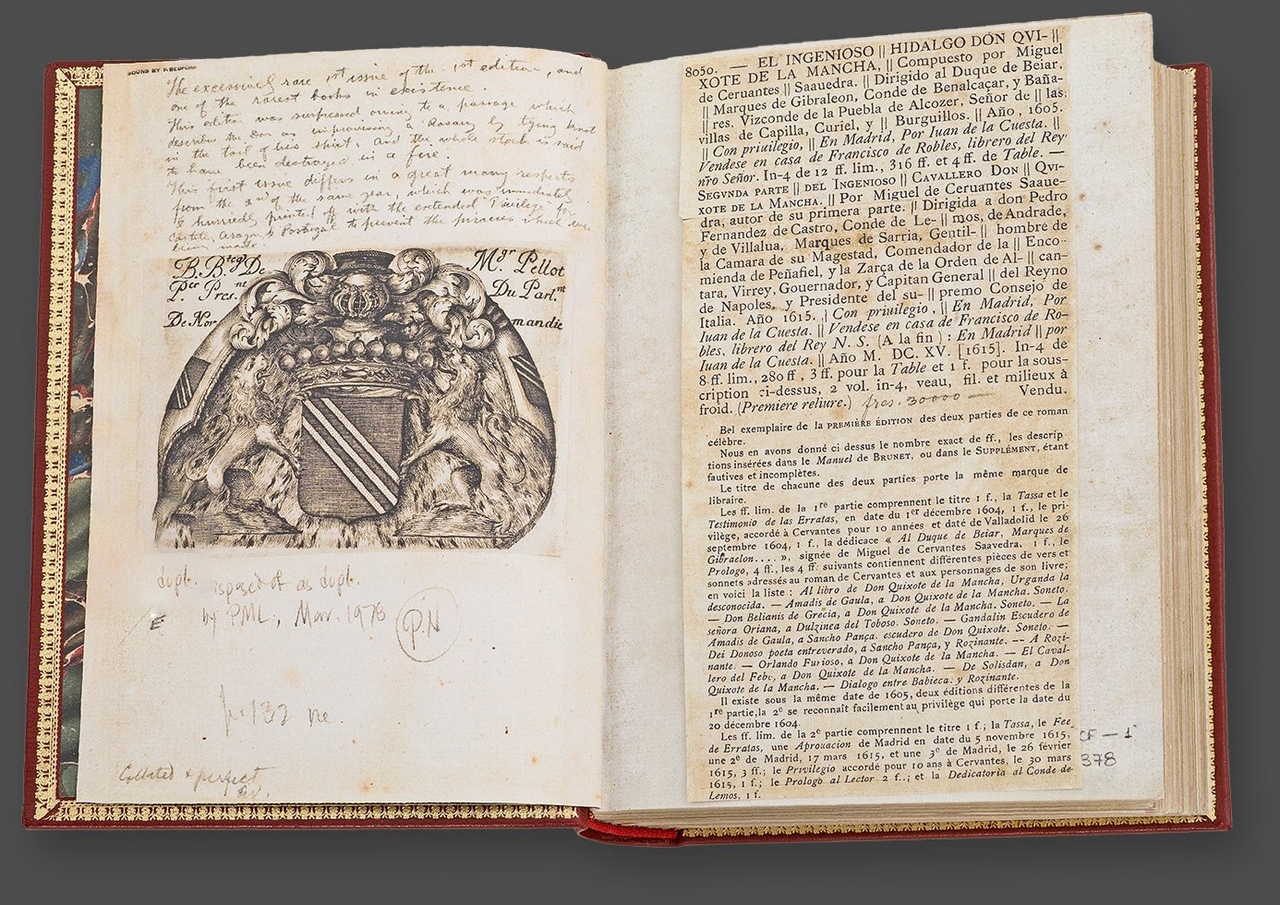 BOUND BY F. BEDFORD
The excessively rare 1st issue of the 1st edition, and
one of the rarest books in existence.
This edition was surpressed owing to a passage which
describes the Don as improvising a Rosary by tying knots
in the tail of his shirt, and the whole stock is said
to have been destroyed in a fire.
This first issue differs in a great many respects
from the 2nd of the same year, which was immediately
& hurriedly printed off with the extended Privilege for
Castile, Aragon & Portugal to prevent the piracies which were
being made
B. Btega De Mgr Pellot
Per Pres.nt Du Parl.nt
De Normandie
dupl. disposed of as dupl.
by PML, Mar. 1978
P.N
E
132
Collated & perfect
8050. — EL INGENIOSO || HIDALGO DON QVI- ||
XOTE DE LA MANCHA, || Compuesto por Miguel
de Ceruantes || Saauedra. || Dirigido al Duque de Beiar,
|| Marques de Gibraleon, Conde de Benalcaçar, y Baña-
|| res, Vizconde de la Puebla de Alcozer, Señor de || las
villas de Capilla, Curiel, y || Burguillos. || Año, 1605.
|| Con priuilegio, || En Madrid, Por Iuan de la Cuesta. ||
Vendese en casa de Francisco de Robles, librero del Rey
nr̃o Señor. In-4 de 12 ff. lim., 316 ff. et 4 ff. de Table. —
SEGVNDA PARTE || DEL INGENIOSO || CAVALLERO DON || QVI-
XOTE DE LA MANCHA. || Por Miguel de Ceruantes Saaue-
dra, autor de su primera parte. || Dirigida a don Pedro
Fernandez de Castro, Conde de Le- || mos, de Andrade,
y de Villalua, Marques de Sarria, Gentil- || hombre de
la Camara de su Magestad, Comendador de la || Enco-
mienda de Peñafiel, y la Zarça de la Orden de Al- || can-
tara, Virrey, Gouernador, y Capitan General || del Reyno
de Napoles, y Presidente del su- || premo Consejo de
Italia. Año 1615. || Con priuilegio, || En Madrid, Por
Iuan de la Cuesta. || Vendese en casa de Francisco de Ro-
bles, librero del Rey N. S. (A la fin) : En Madrid || por
Iuan de la Cuesta. || Año M. DC. XV. [1615]. In-4 de
8 ff. lim., 280 ff., 3 ff. pour la Table et 1 f. pour la sous-
cription ci-dessus, 2 vol. in-4, veau, fil. et milieux à
froid. (Premiere reliure.) frcs. 30000 — Vendu.
Bel exemplaire de la PREMIÈRE ÉDITION des deux parties de ce roman
célèbre.
Nous en avons donné ci dessus le nombre exact de ff., les descrip
tions insérées dans le Manuel de BRUNET, ou dans le SUPPLÉMENT, étant
fautives et incomplètes.
Le titre de chacune des deux parties porte la même marque de
libraire.
Les ff. lim. de la 1re partie comprennent le titre 1 f., la Tassa et le
Testimonio de las Erratas, en date du 1er décembre 1604, 1 f., le pri-
vilège, accordé à Cervantes pour 10 années et daté de Valladolid le 26
septembre 1604, 1 f., la dédicace « Al Duque de Beiar, Marques de
Gibraelon.... », signée de Miguel de Cervantes Saavedra, 1 f., le
Prologo, 4 ff., les 4 ff. suivants contiennent différentes pièces de vers et
sonnets adressés au roman de Cervantes et aux personnages de son livre;
en voici la liste : Al libro de Don Quixote de la Mancha, Urganda la
desconocida. — Amadis de Gaula, a Don Quixote de la Mancha. Soneto.
— Don Belianis de Grecia, a Don Quixote de la Mancha. Soneto. — La
señora Oriana, a Dulzinea del Toboso. Soneto. — Gandalin Escudero de
Amadis de Gaula, a Sancho Pança, escudero de Don Quixote. Soneto. —
Del Donoso poeta entreverado, a Sancho Pança, y Rozinante. — A Rozi-
nante. — Orlando Furioso, a Don Quixote de la Mancha. — El Caval-
lero del Febo, a Don Quixote de la Mancha. — De Solisdan, a Don
Quixote de la Mancha. — Dialogo entre Babieca y Rozinante.
Il existe sous la même date de 1605, deux éditions différentes de la
1re partie, la 2e se reconnaît facilement au privilège qui porte la date du
20 décembre 1604.
Les ff. lim. de la 2e partie comprennent le titre 1 f; la Tassa, le Fee
de Erratas, une Aprouacion de Madrid en date du 5 novembre 1615,
une 2e de Madrid, 17 mars 1615, et une 3e de Madrid, le 26 février
1615, 3 ff.; le Privilegio accordé pour 10 ans à Cervantes, le 30 mars
1615, 1 f.; le Prologo al Lector 2 f.; et la Dedicatoria al Conde de
Lemos, 1 f.
CF — 1
378